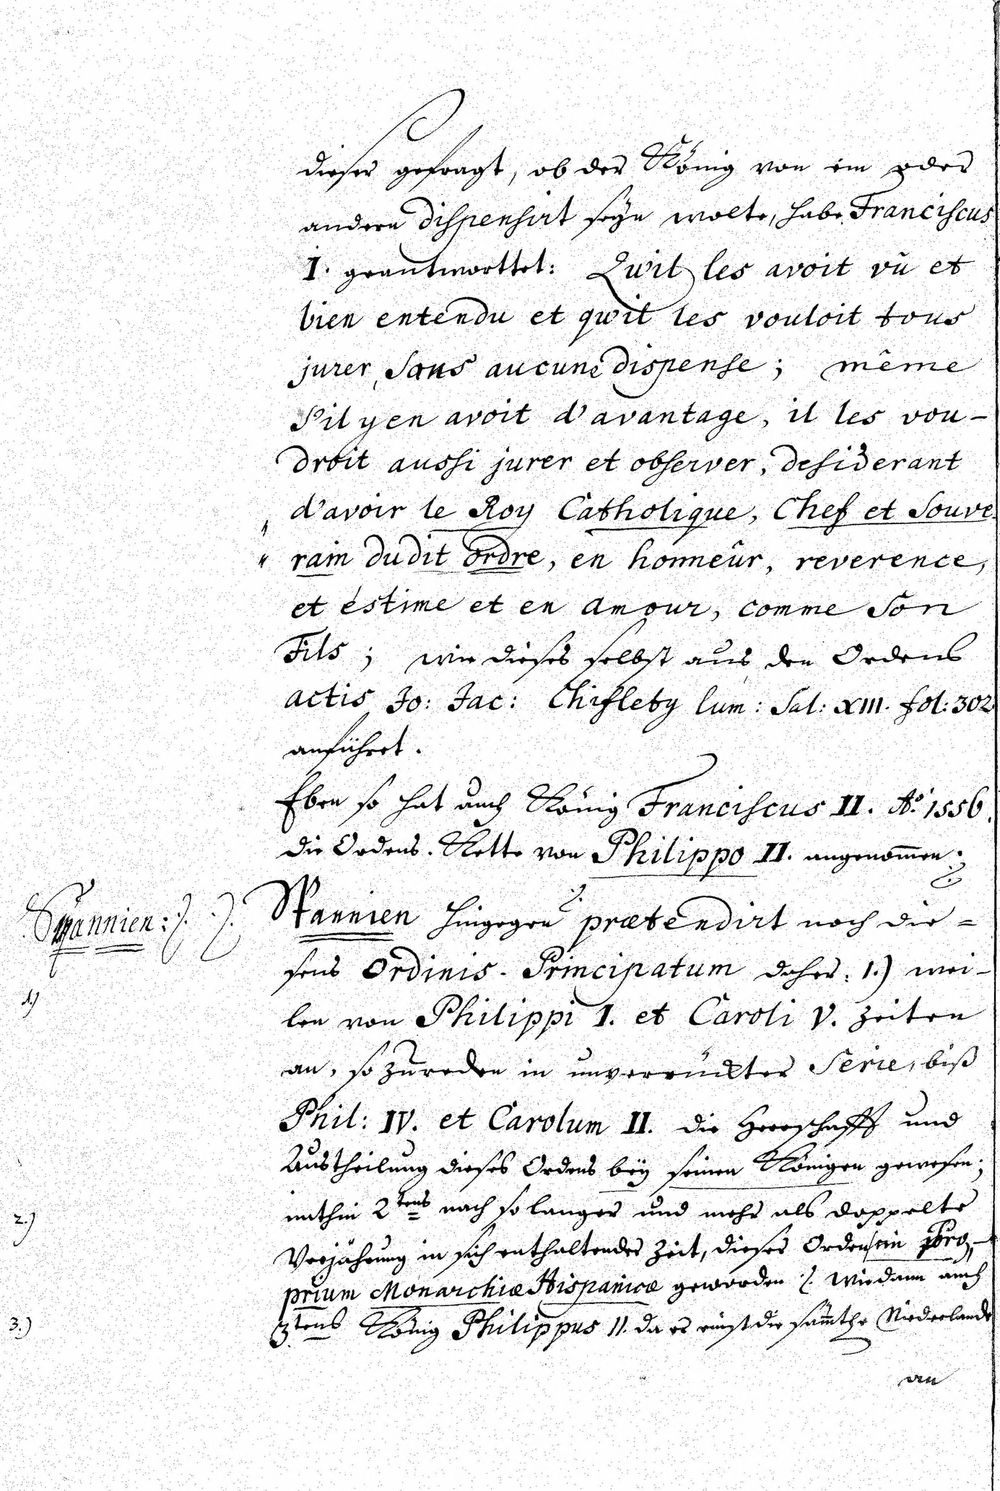 dieser gefragt, ob der König von ein oder
andern dispensirt seÿn wolte, habe Franciscus
I. geantworttet: Qu'il les avoit vû et
bien entendu et qu'il les vouloit tous
jurer, sans aucune dispense; même
s'il y en avoit d'avantage, il les vou-
droit aussi jurer et observer, desiderant
d'avoir le Roy Catholique, Chef et Souve
rain dudit ordre, en honneûr, reverence,
et éstime et en amour, comme Son
Fils; wie dieses selbst aus den Ordens
actis Jo: Jac: Chifleby lum: Sal: XIII. fol: 302
anführet.
Eben so hat auch König Franciscus II. Ao. 1556.
die Ordens-Kette von Philippo II. angenommen.
Spannien:
Spannien hingegen prætendirt noch die=
sens Ordinis-Principatum daher: 1.) wei-
1.)
len von Philippi I. et Caroli V. Zeiten
an, so zureden in unverruckter Serie, biß
Phil: IV. et Carolum II. die Herrschafft und
Austheilung dieses Ordens beÿ seinen Königen gewesen;
mithin 2tens nach so langer und mehr als doppelte
2.)
Verjährung in sich enthaltender Zeit, dieser Orden ein pro-
prium Monarchiæ Hispanicæ geworden /. Wie dann auch
3tens König Philippus II. da er einst die sämthe Niederlande
3.)
an